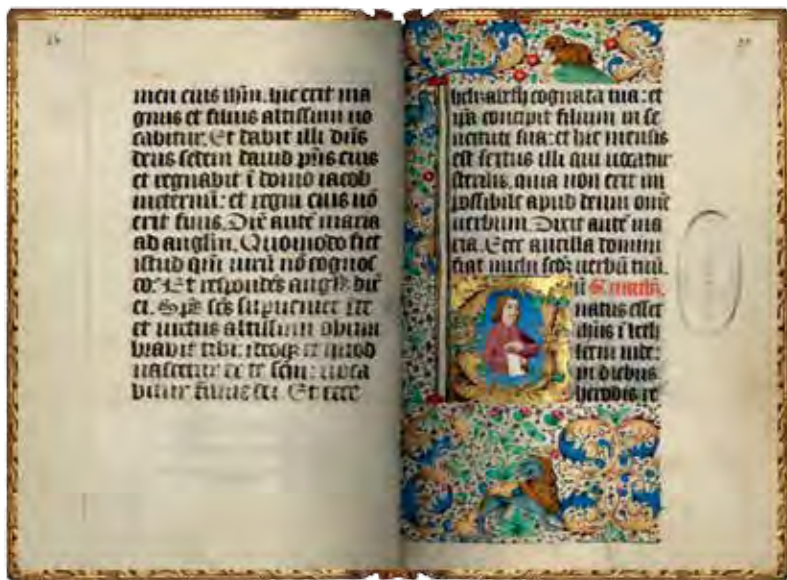 men eius ihm. hic erit ma
gnus et filius altissimi uo
cabitur. Et dabit illi dn̄s
deus sedem dauid pr̄is eius
et regnabit ī domo iacob
ineternū: et regni eius nō
erit finis. Dix̄ autē maria
ad anglm̄. Quomodo fiet
istud qm̄ uirū nō cognos
co: Et respondēs angls̄ dix̄
ei. Sp̄s sc̄s supueniet ī te
et uirtus altissimi obum
brabit tibi: ideoqȝ et quod
nascetur ex te scm̄: uoca
bitur filius dei. Et ecce
helizabeth cognata tua: et
ip̄a concipit filium in se
nectute sua: et hic mensis
est sextus illi qui uocatur
sterilis. quia non erit im
possibile apud deum omē
uerbum. Dixit autē ma
ria. Ecce ancilla domini
fiat michi scdȝ uerbū tuū.
natus esset
ihūs ī beth
leem iude:
in diebus
herodis re